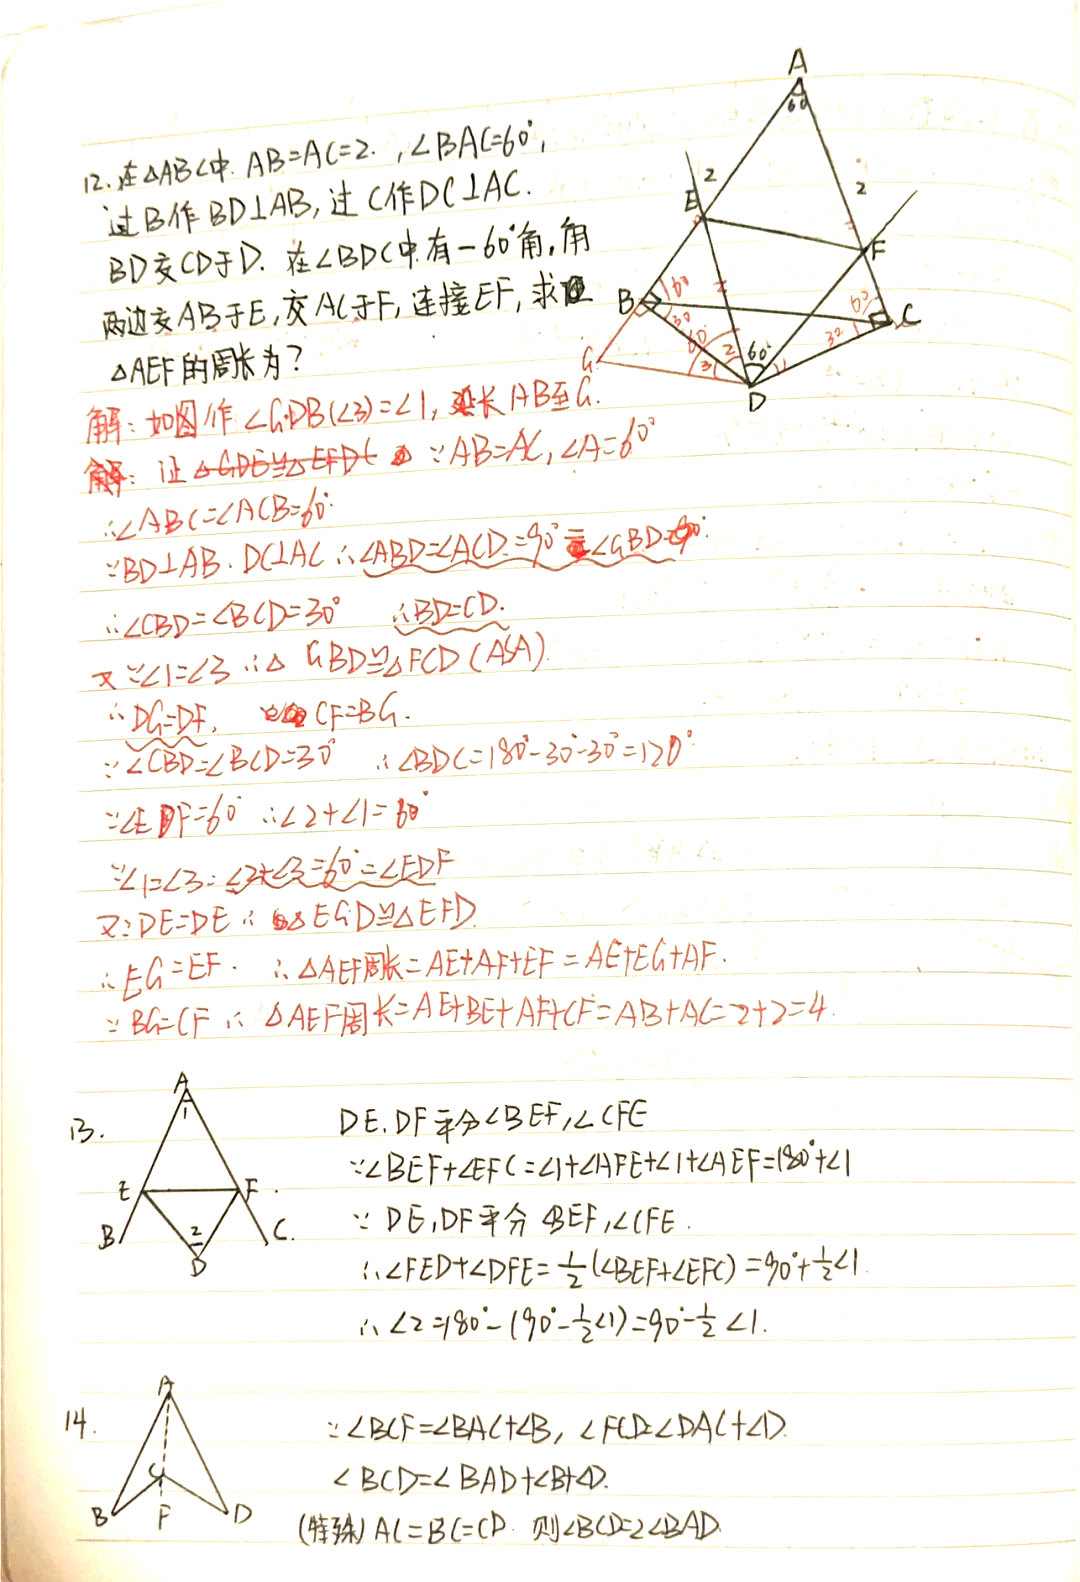 12.在△ABC中. AB=AC=2. ,∠BAC=60°,
过B作BD⊥AB,过C作DC⊥AC.
BD交CD于D. 在∠BDC中有一60°角,角
两边交AB于E,交AC于F,连接EF,求
△AEF的周长为?
A
60
2
2
E
F
B
60
30
60
C
30
G
60°
2
3
1
D
解:如图作∠GDB(∠3)=∠1,延长AB至G.
解:证△GDE≌△EFD ∵AB=AC,∠A=60°
∴∠ABC=∠ACB=60°
∵BD⊥AB.DC⊥AC ∴∠ABD=∠ACD=90°=∠GBD=90°
∴∠CBD=∠BCD=30° ∴BD=CD.
又∵∠1=∠3 ∴△GBD≌△FCD(ASA)
∴DG=DF, CF=BG.
∵∠CBD=∠BCD=30° ∴∠BDC=180°-30°-30°=120°
∵∠EDF=60° ∴∠2+∠1=60°
∵∠1=∠3∴∠2+∠3=60°=∠EDF
又∵DE=DE∴△EGD≌△EFD.
∴EG=EF. ∴△AEF周长=AE+AF+EF=AE+EG+AF.
∵BG=CF∴△AEF周长=AE+BE+AF+CF=AB+AC=2+2=4.
13.
A
1
E
F
B
2
C.
D
DE.DF平分∠BEF,∠CFE
∵∠BEF+∠EFC=∠1+∠AFE+∠1+∠AEF=180°+∠1
∵DE,DF平分∠BEF,∠CFE.
∴∠FED+∠DFE=1/2(∠BEF+∠EFC)=90°+1/2∠1.
∴∠2=180°-(90°-1/2∠1)=90°-1/2∠1.
14.
A
C
B
F
D
∵∠BCF=∠BAC+∠B, ∠FCD=∠DAC+∠D.
∠BCD=∠BAD+∠B+∠D.
(特殊)AC=BC=CD. 则∠BCD=2∠BAD